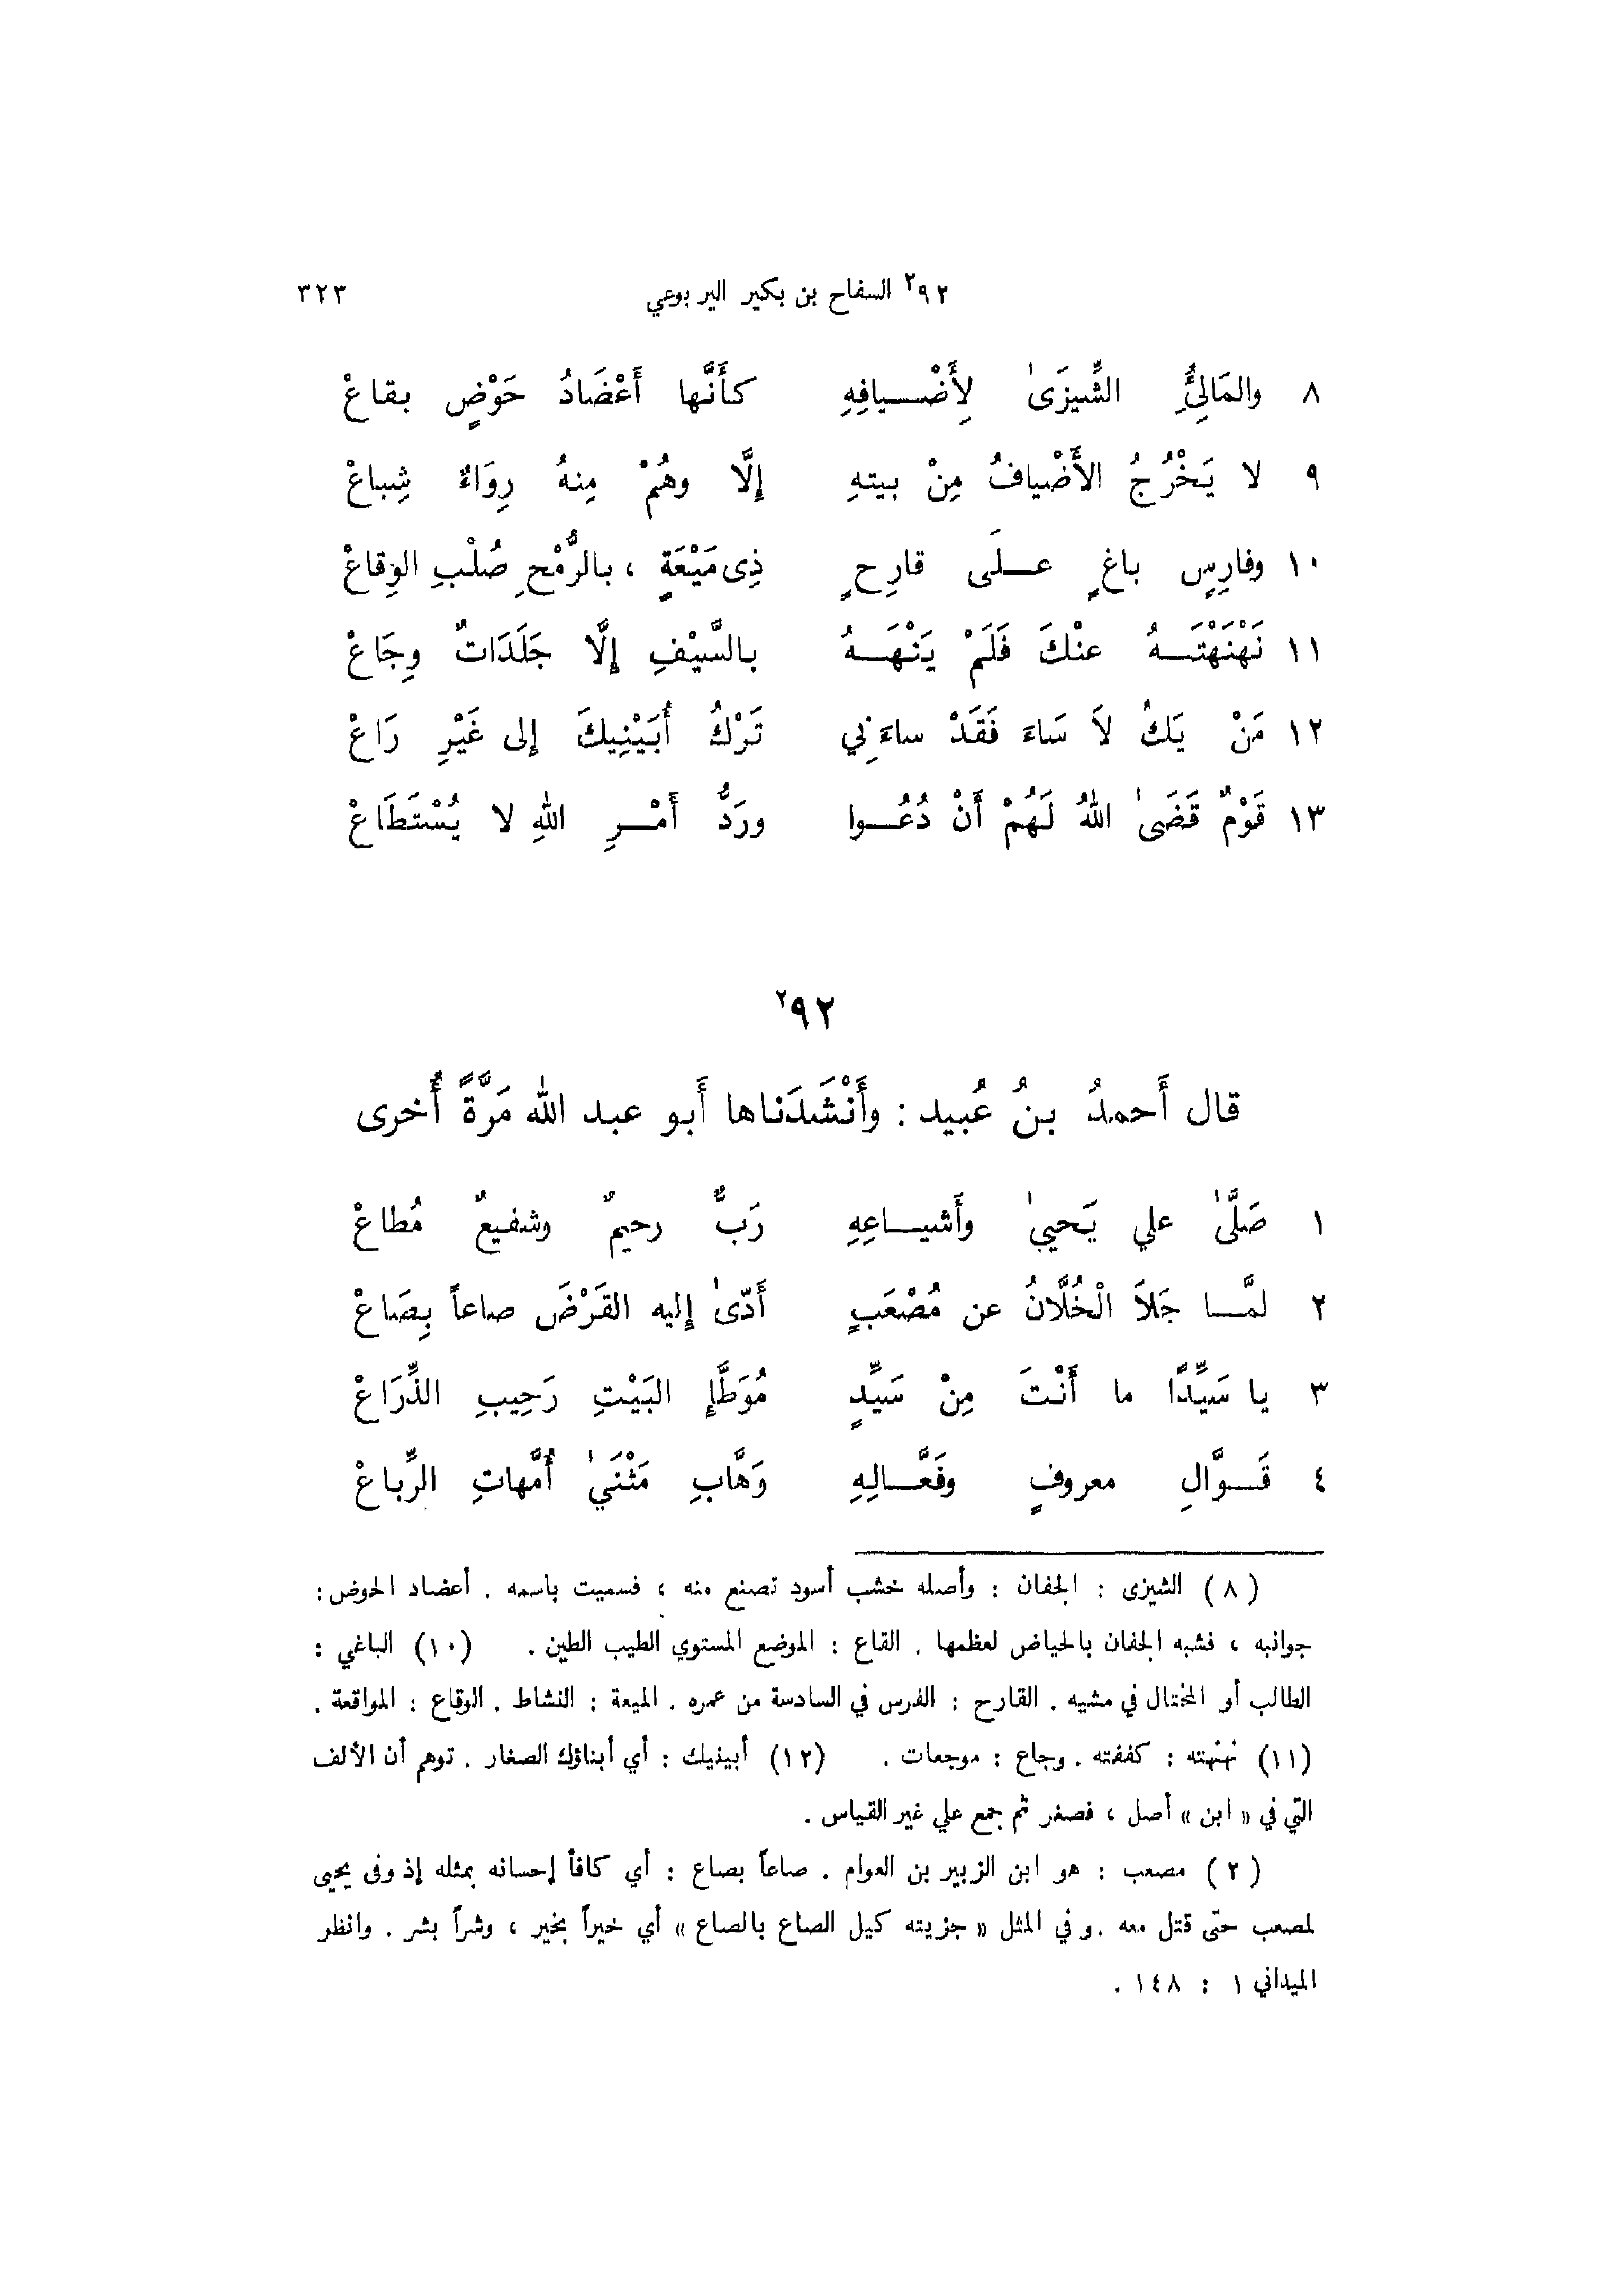 ٩٢² السفاح بن بكير اليربوعي ٣٢٣
٨ والمَالِئُ الشِّيزَىٰ لِأَضْـيافِهِ كأَنَّها أَعْضَادُ حَوْضٍ بقاعْ
٩ لا يَخْرُجُ الأَضْيافُ مِنْ بيتهِ إِلَّا وهُمْ مِنهُ رِوَاءٌ شِباعْ
١٠ وفارِسٍ باغٍ عـلَى قارِحٍ ذِى مَيْعَةٍ ، بالرُّمْحِ صُلْبِ الوِقاعْ
١١ نَهْنَهْتَـهُ عنْكَ فَلَمْ يَنْهَـهُ بالسَّيْفِ إِلَّا جَلَدَاتٌ وِجَاعْ
١٢ مَنْ يَكُ لاَ سَاءَ فَقَدْ ساءَنِي تَرْكُ أُبَيْنِيكَ إلى غَيْرِ رَاعْ
١٣ قَوْمٌ قَضَىٰ اللهُ لَهُمْ أَنْ دُعُـوا ورَدُّ أَمْـرِ اللهِ لا يُسْتَطَاعْ
٩٢²
قال أَحمدُ بنُ عُبيد : وأَنْشَدَناها أَبو عبد الله مَرَّةً أُخرى
١ صَلَّىٰ علي يَحييٰ وأَشيـاعِهِ رَبٌّ رحيمٌ وشفيعٌ مُطاعْ
٢ لمَّـا جَلاَ الْخُلَّانُ عن مُصْعَبٍ أَدّىٰ إليه القَرْضَ صاعاً بِصَاعْ
٣ يا سَيِّدًا ما أَنْتَ مِنْ سَيِّدٍ مُوَطَّإِ البَيْتِ رَحِيبِ الذِّرَاعْ
٤ قَـوَّالِ معروفٍ وفَعَّـالِهِ وَهَّابِ مَثْنَيٰ أُمَّهاتِ الرِّباعْ
( ٨ ) الشيزى : الجفان : وأصله خشب أسود تصنع منه ، فسميت باسمه . أعضاد الحوض :
جوانبه ، فشبه الجفان بالحياض لعظمها . القاع : الموضع المستوي الطيب الطين . (١٠) الباغي :
الطالب أو المختال في مشيه . القارح : الفرس في السادسة من عمره . الميعة : النشاط . الوقاع : المواقعة .
(١١) نهنهته : كففته . وجاع : موجعات . (١٢) أبينيك : أي أبناؤك الصغار . توهم أن الألف
التي في « ابن » أصل ، فصغر ثم جمع علي غير القياس .
( ٢ ) مصعب : هو ابن الزبير بن العوام . صاعاً بصاع : أي كافأ إحسانه بمثله إذ وفى يحيى
لمصعب حتى قتل معه . وفي المثل « جزيته كيل الصاع بالصاع » أي خيراً بخير ، وشراً بشر . وانظر
الميداني ١ : ١٤٨ .